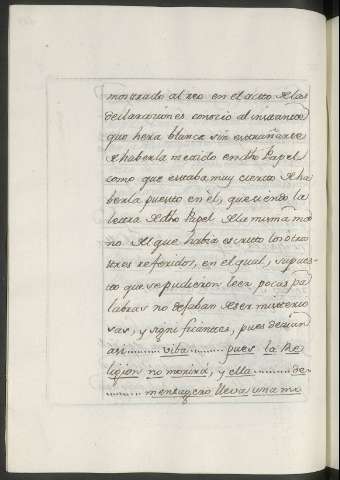 mostrado al reo en el acto de las
declaraciones conocio al instante
que hera blanca sin estrañarse
de haberla metido en dho Papel
como que estaba muy cierto de ha
berla puesto en èl, que siendo la
letra de dho Papel de la misma ma
no del que habia escrito los otros
tres referidos, en el qual, supues-
to que se pudieron leer pocas pa
labras no dejaban de ser misterio
sas, y significantes, pues decian
asi........... vita .......... pues la Re
ligion no morirà, y ella .......... de-
.......... mensagero lleva una mo